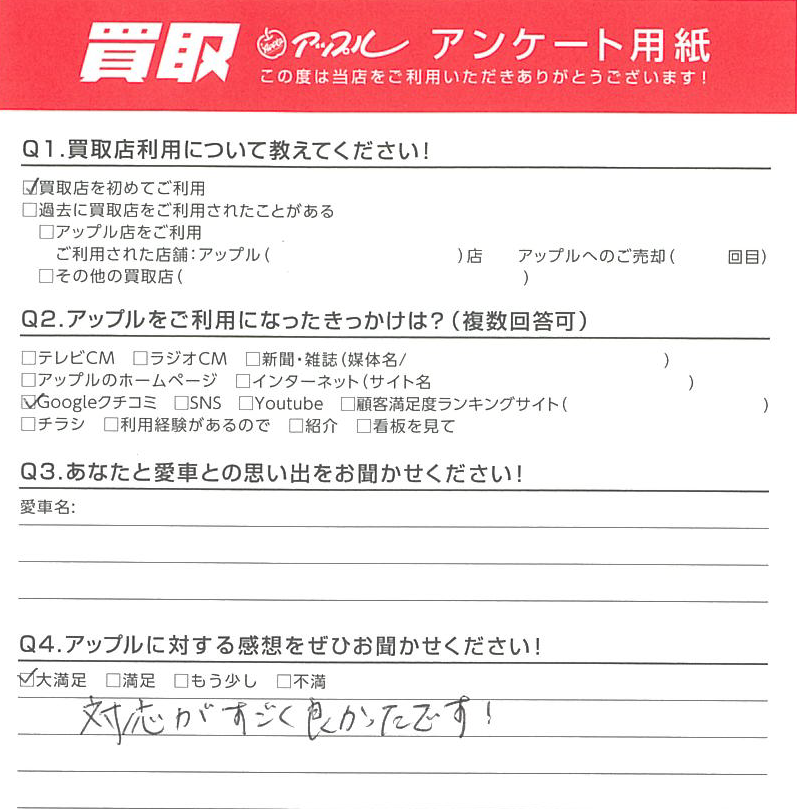 買取 アップル アンケート用紙
この度は当店をご利用いただきありがとうございます！
Q1.買取店利用について教えてください！
☑買取店を初めてご利用
□過去に買取店をご利用されたことがある
□アップル店をご利用
ご利用された店舗：アップル（ ）店 アップルへのご売却（ 回目）
□その他の買取店（ ）
Q2.アップルをご利用になったきっかけは？（複数回答可）
□テレビCM □ラジオCM □新聞・雑誌（媒体名/ ）
□アップルのホームページ □インターネット（サイト名 ）
☑Googleクチコミ □SNS □Youtube □顧客満足度ランキングサイト（ ）
□チラシ □利用経験があるので □紹介 □看板を見て
Q3.あなたと愛車との思い出をお聞かせください！
愛車名：
Q4.アップルに対する感想をぜひお聞かせください！
☑大満足 □満足 □もう少し □不満
対応がすごく良かったです！